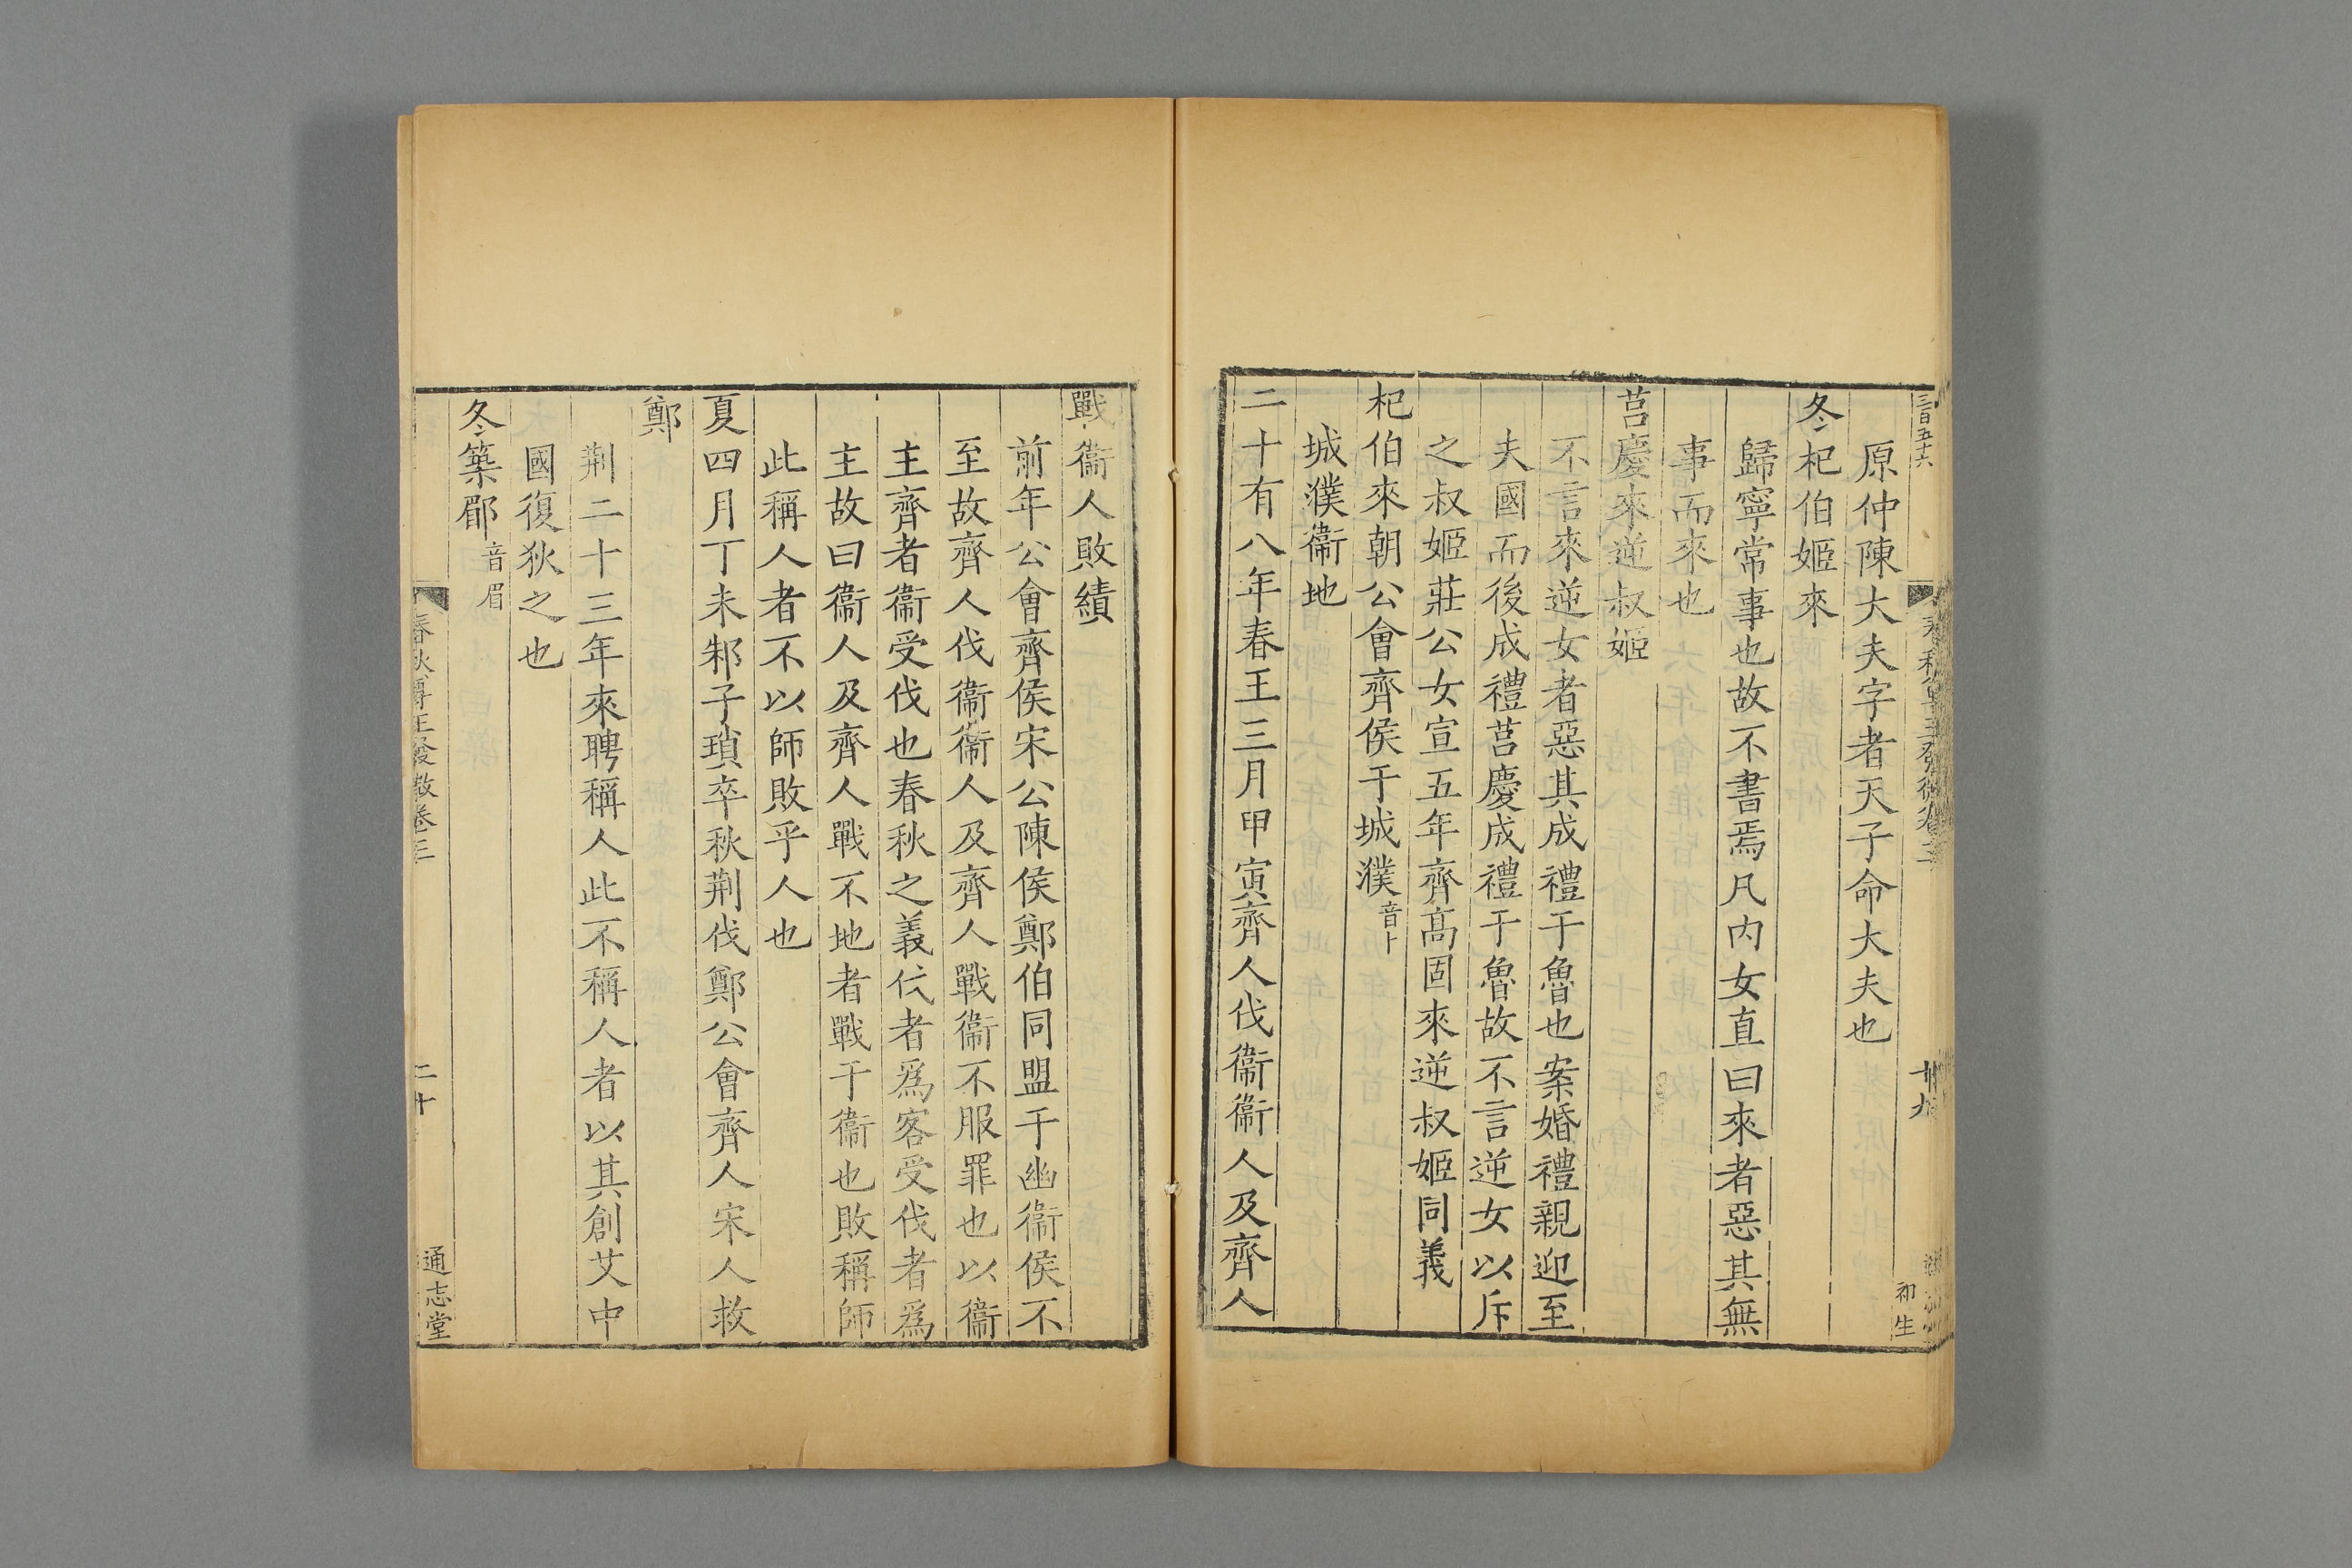 三百五十六
春秋尊王發微卷三
十九
初生
原仲陳大夫字者天子命大夫也
冬杞伯姬來
歸寧常事也故不書焉凡内女直曰來者惡其無
事而來也
莒慶來逆叔姬
不言來逆女者惡其成禮于魯也案婚禮親迎至
夫國而後成禮莒慶成禮于魯故不言逆女以斥
之叔姬莊公女宣五年齊髙固來逆叔姬同義
杞伯來朝公會齊侯于城濮音卜
城濮衞地
二十有八年春王三月甲寅齊人伐衞衞人及齊人
戰衞人敗績
前年公會齊侯宋公陳侯鄭伯同盟于幽衞侯不
至故齊人伐衞衞人及齊人戰衞不服罪也以衞
主齊者衞受伐也春秋之義伐者爲客受伐者爲
主故曰衞人及齊人戰不地者戰于衞也敗稱師
此稱人者不以師敗乎人也
夏四月丁未邾子瑣卒秋荆伐鄭公會齊人宋人救
鄭
荆二十三年來聘稱人此不稱人者以其創艾中
國復狄之也
冬築郿音眉
春秋尊王發微卷三
二十
通志堂